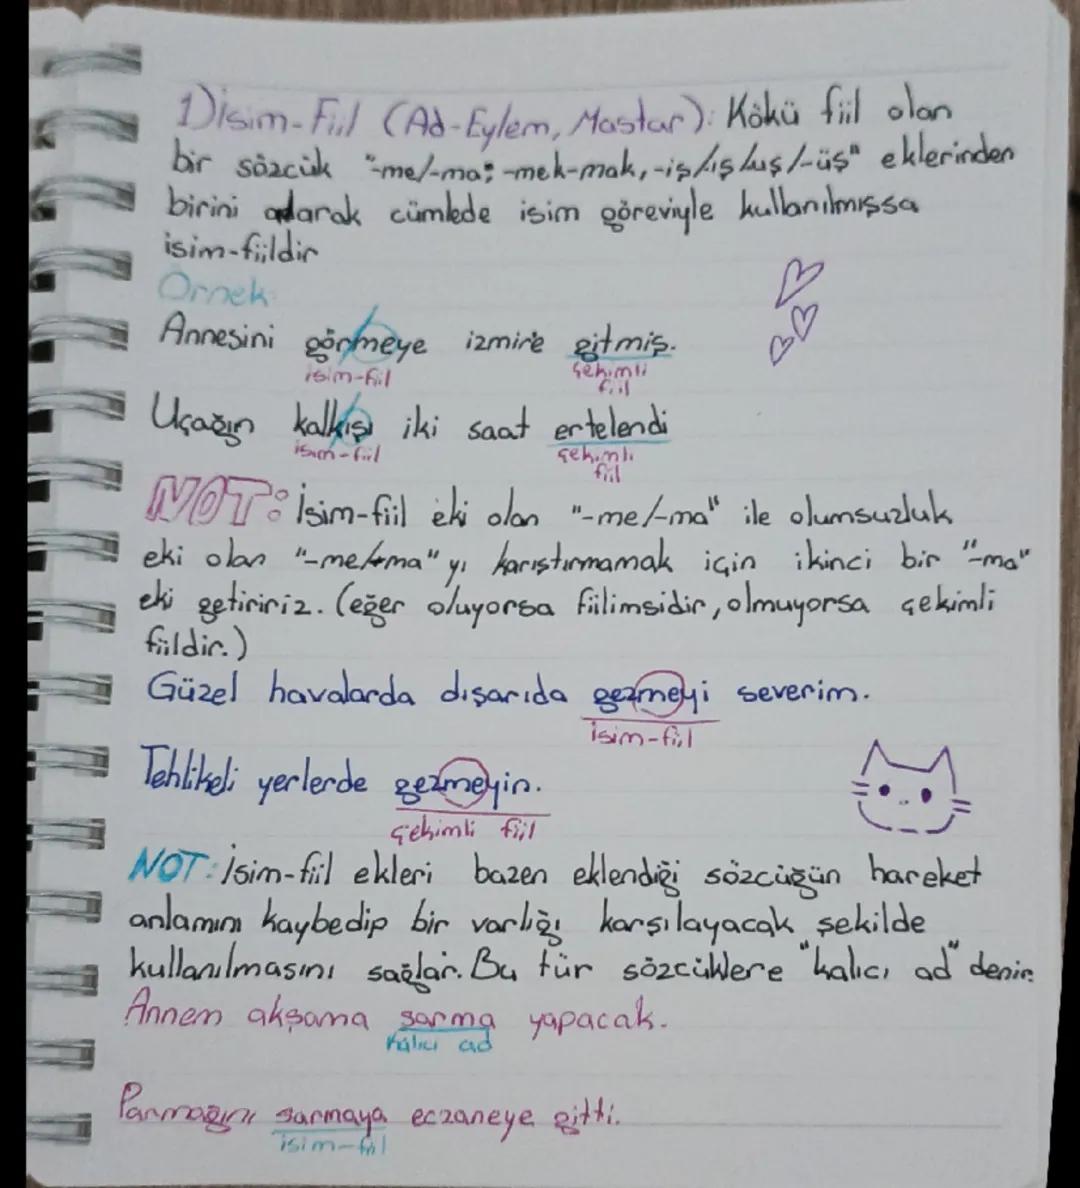 1) İsim-Fiil (Ad-Eylem, Mastar): Kökü fiil olan
bir sözcük "-me/-ma; -mek-mak, -iş/ış/uş/-üş" eklerinden
birini alarak cümlede isim göreviyle kullanılmışsa
isim-fiildir
Örnek:
Annesini görmeye izmir'e gitmiş.
isim-fiil çekimli
fiil
Uçağın kalkışı iki saat ertelendi
isim-fiil çekimli
fiil
NOT: İsim-fiil eki olan "-me/-ma" ile olumsuzluk
eki olan "-me/-ma" yı karıştırmamak için ikinci bir "-ma"
eki getiririz. (eğer oluyorsa fiilimsidir, olmuyorsa çekimli
fiildir.)
Güzel havalarda dışarıda gezmeyi severim.
isim-fiil
Tehlikeli yerlerde gezmeyin.
çekimli fiil
NOT: İsim-fiil ekleri bazen eklendiği sözcüğün hareket
anlamını kaybedip bir varlığı karşılayacak şekilde
kullanılmasını sağlar. Bu tür sözcüklere "kalıcı ad" denir.
Annem akşama sarma yapacak.
kalıcı ad
Parmağını sarmaya eczaneye gitti.
isim-fiil